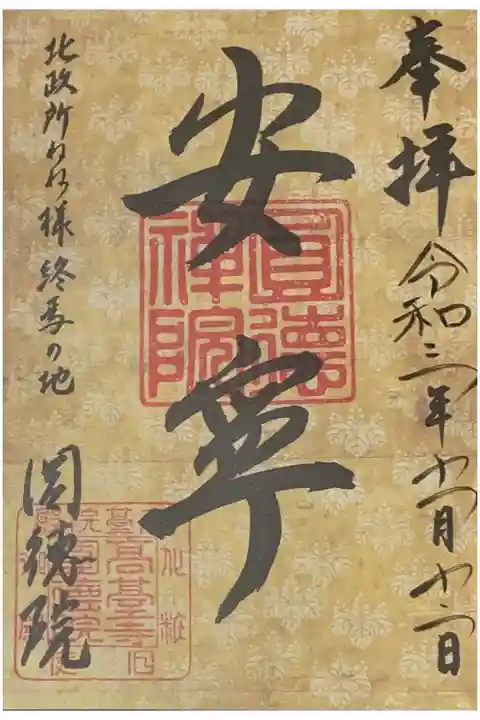 奉拝 令和三年十一月
安寧
圓德
禪院
北政所ねね様終焉の地 圓徳院
高臺寺